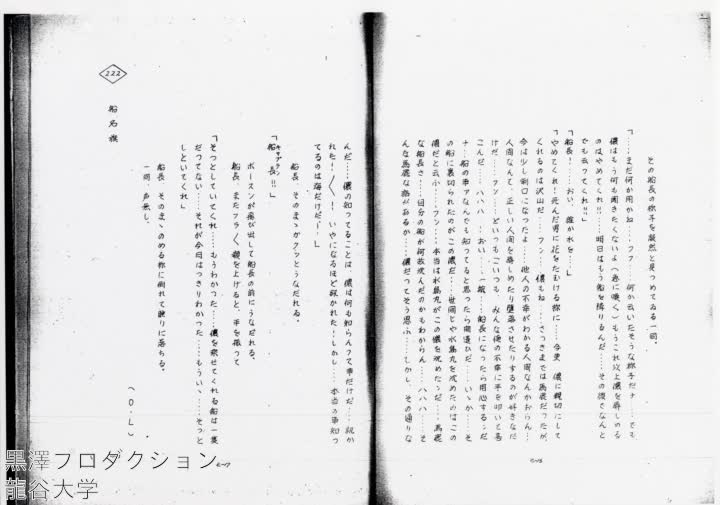 その船長の様子を凝然と見つめてゐる一同。
「……まだ何か用かね……フフ……何か云いたそうな様子だナ……でも
僕はもう何も聞きたくないよ
もうこれ以上僕を辱しめる
のはやめてくれ!!……明日はもう船を降りるんだ……その後でなんと
でも云ってくれ!!」
「船長!……おい、誰か水を……」
「やめてくれ!死んだ男に花をたむける様に……今更、僕に親切にして
くれるのは沢山だ……フン……僕もね……さっきまでは馬鹿だったが
今は少し利口になったよ……他人の不幸がわかる人間なんかおらん…
人間なんて、正しい人間を辱しめたり堕落させたりするのが好きなだ
けだ……フン……どいつもこいつも、みんな俺の不幸に手を叩いて喜
こんだ……ハハハ……おい……一撥……船長になったら用心するんだ
ナ…船の事ならなんでも知ってると思ったら間違ひだ……いゝか……そ
の船に裏切られたのがこの僕だ……世間じや水島丸を沈めたのはこの
僕だと云ふ……フン……本当は水島丸がこの僕を沈めたんだ……馬鹿
な船長さ……自分の船が何故沈んだのかもわからん……ハハハ……そ
んな馬鹿な話があるか……僕だってそう思ふ……しかし、その通りな
んだ……僕の知ってることは、僕は何も知らんって事だけだ……訊か
れた!
いやになるほど訊かれた!しかし……本当の事知っ
てるのは海だけだ―!」
船長 そのまゝガクッとうなだれる。
「船長!!」
キャプテン
ボースンが飛び出して船長の前にうなだれる。
船長 またフラ〱顔を上げると 手を振って
「そっとしていてくれ……もうわかった……僕を乗せてくれる船は一隻
だってない……それが今日はっきりわかった……もういゝ……そっと
しといてくれ」
船長 そのまゝのめる様に倒れて眠りに落ちる。
一同 声無し。
(O・L)
222
船名旗
黒澤プロダクション
龍谷大学